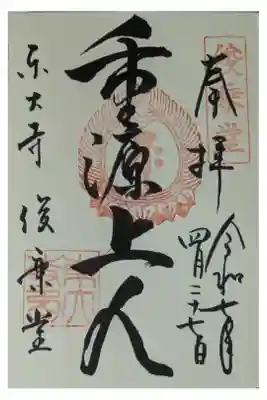 俊乗堂
奉拝
令和七年
四月二十七日
重源上人
東大寺 俊乗堂